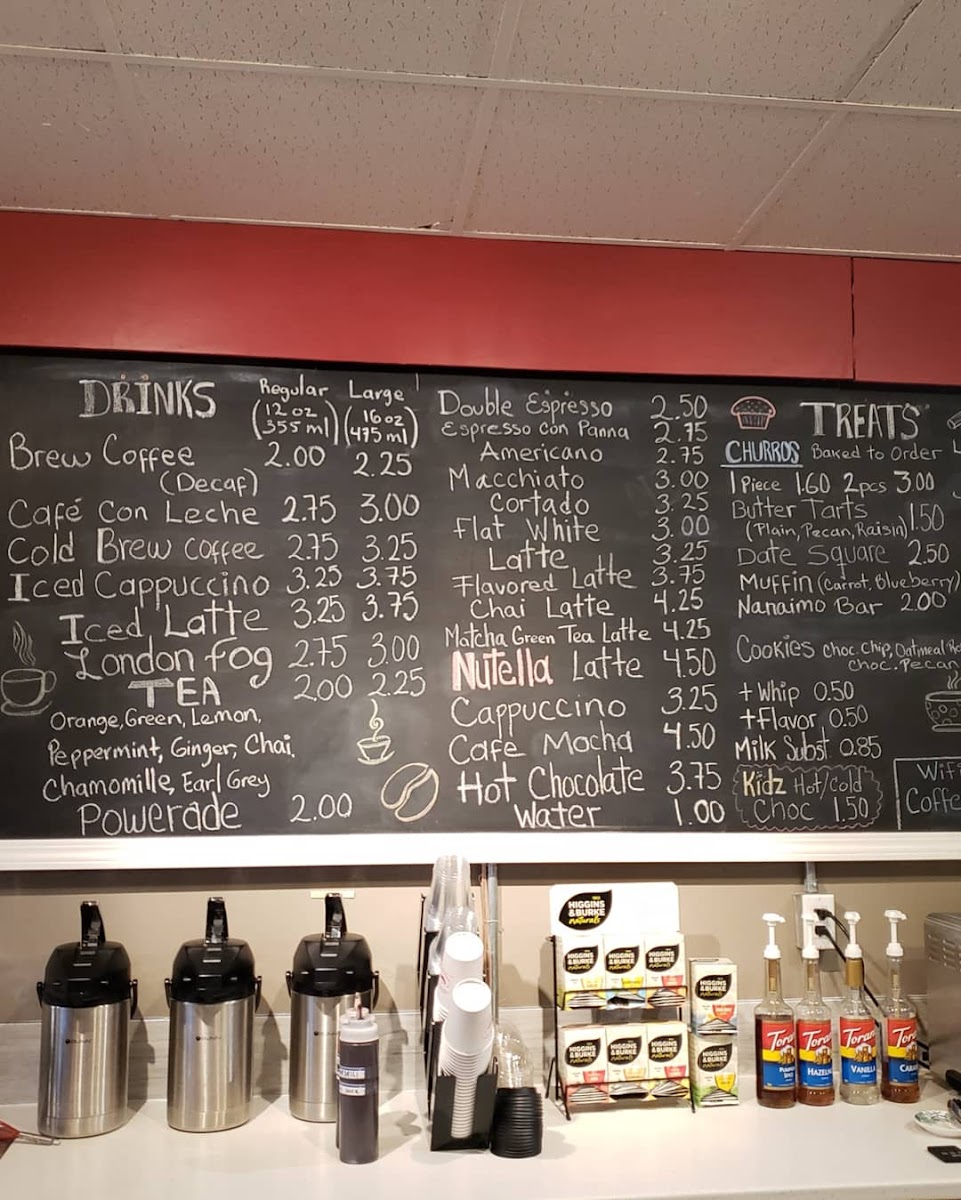 DRINKS Regular Large
(12 oz 355 ml) (16 oz 475 ml)
Brew Coffee 2.00 2.25
(Decaf)
Café Con Leche 2.75 3.00
Cold Brew Coffee 2.75 3.25
Iced Cappuccino 3.25 3.75
Iced Latte 3.25 3.75
London fog 2.75 3.00
TEA 2.00 2.25
Orange, Green, Lemon,
Peppermint, Ginger, Chai,
Chamomille, Earl Grey
Powerade 2.00
Double Espresso 2.50
Espresso Con Panna 2.75
Americano 2.75
Macchiato 3.00
Cortado 3.25
Flat White 3.00
Latte 3.25
Flavored Latte 3.75
Chai Latte 4.25
Matcha Green Tea Latte 4.25
Nutella Latte 4.50
Cappuccino 3.25
Cafe Mocha 4.50
Hot Chocolate 3.75
Water 1.00
TREATS
CHURROS Baked to Order
1 Piece 1.60 2pcs 3.00
Butter Tarts 1.50
(Plain, Pecan, Raisin)
Date Square 2.50
Muffin (Carrot, Blueberry)
Nanaimo Bar 2.00
Cookies Choc. Chip, Oatmeal
Choc. Pecan
+ Whip 0.50
+ Flavor 0.50
Milk Subst 0.85
Kidz Hot/Cold
Choc 1.50
Wifi
Coffe
HIGGINS &BURKE naturals
HIGGINS &BURKE naturals
HIGGINS &BURKE naturals
HIGGINS &BURKE naturals
HIGGINS &BURKE naturals
HIGGINS &BURKE naturals
HIGGINS &BURKE naturals
HIGGINS &BURKE naturals
HIGGINS &BURKE naturals
Torani
Torani
HAZELNU
Torani
VANILLA
Torani
CARA